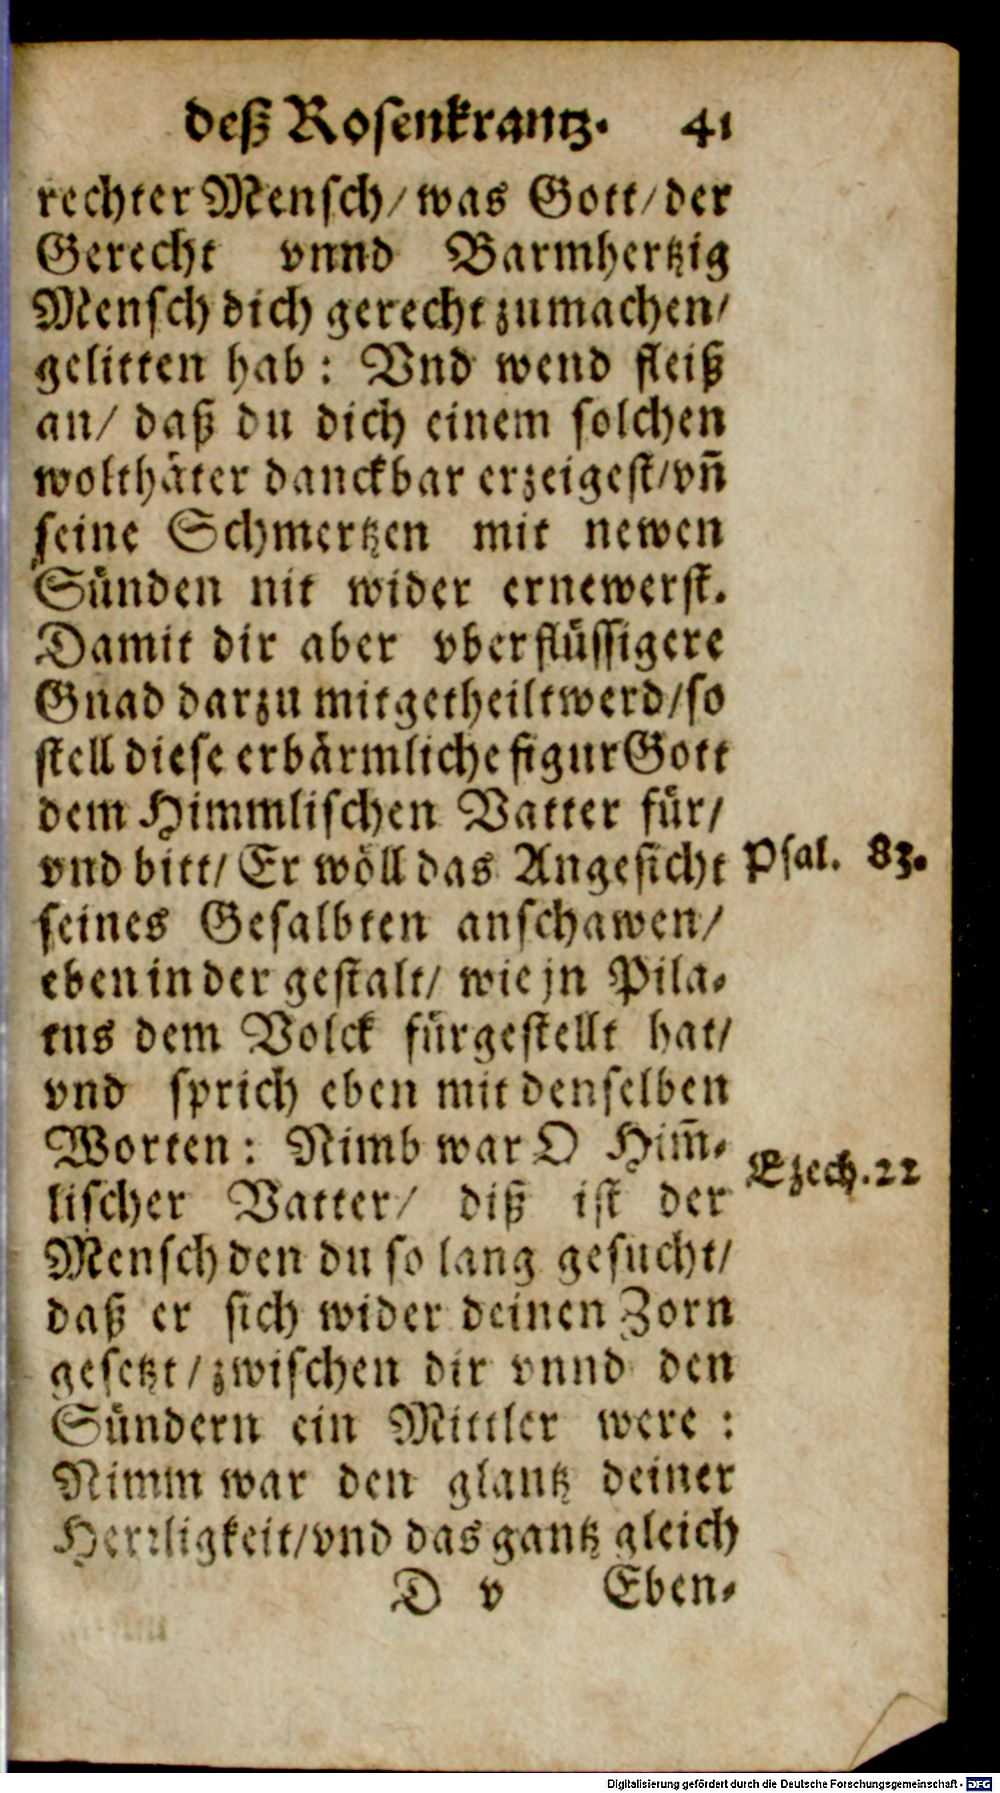 deß Rosenkrantz. 41
rechter Mensch/ was Gott/ der
Gerecht vnnd Barmhertzig
Mensch dich gerecht zumachen/
gelitten hab: Vnd wend fleiß
an/ daß du dich einem solchen
wolthäter danckbar erzeigest/ vn̄
seine Schmertzen mit newen
Sünden nit wider ernewerst.
Damit dir aber vberflüssigere
Gnad darzu mitgetheilt werd/ so
stell diese erbärmliche figur Gott
dem Himmlischen Vatter für/
vnd bitt/ Er wöll das Angesicht Psal. 83.
seines Gesalbten anschawen/
eben in der gestalt/ wie jn Pila-
tus dem Volck fürgestellt hat/
vnd sprich eben mit denselben
Worten: Nimb war O Him̄-
lischer Vatter/ diß ist der Ezech. 22
Mensch den du so lang gesucht/
daß er sich wider deinen Zorn
gesetzt/ zwischen dir vnnd den
Sündern ein Mittler were:
Nimm war den glantz deiner
Herrligkeit/ vnd das gantz gleich
D v Eben-
Digitalisierung gefördert durch die Deutsche Forschungsgemeinschaft - DFG